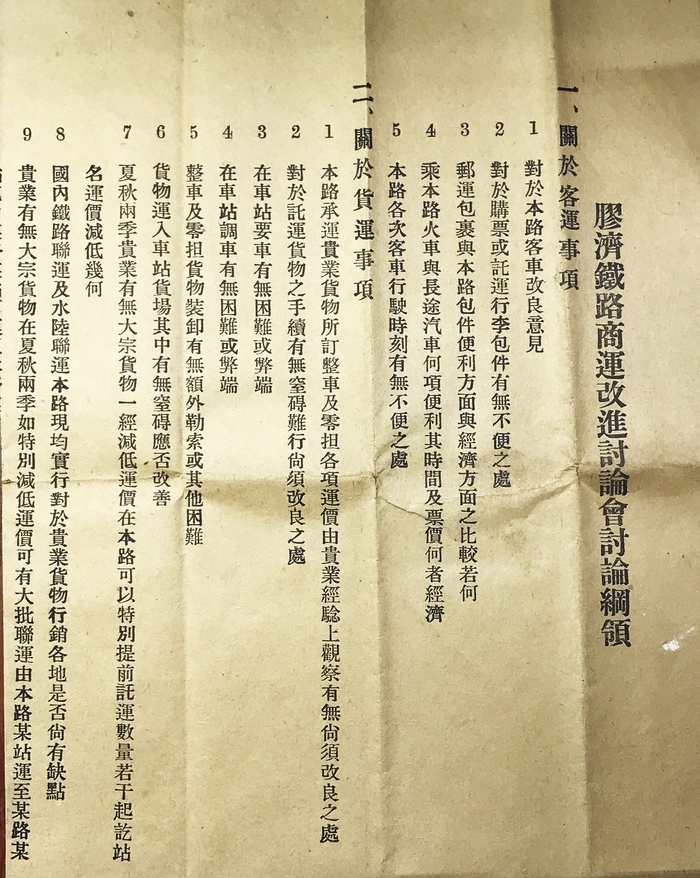 膠濟鐵路商運改進討論會討論綱領
一、關於客運事項
1 對於本路客車改良意見
2 對於購票或託運行李包件有無不便之處
3 郵運包裹與本路包件便利方面與經濟方面之比較若何
4 乘本路火車與長途汽車何項便利其時間及票價何者經濟
5 本路各次客車行駛時刻有無不便之處
二、關於貨運事項
1 本路承運貴業貨物所訂整車及零担各項運價由貴業經驗上觀察有無尙須改良之處
2 對於託運貨物之手續有無窒碍難行尙須改良之處
3 在車站要車有無困難或弊端
4 在車站調車有無困難或弊端
5 整車及零担貨物裝卸有無額外勒索或其他困難
6 貨物運入車站貨場其中有無窒碍應否改善
7 夏秋兩季貴業有無大宗貨物一經減低運價在本路可以特別提前託運數量若干起訖站
名運價減低幾何
8 國內鐵路聯運及水陸聯運本路現均實行對於貴業貨物行銷各地是否尙有缺點
9 貴業有無大宗貨物在夏秋兩季如特別減低運價可有大批聯運由本路某站運至某路某